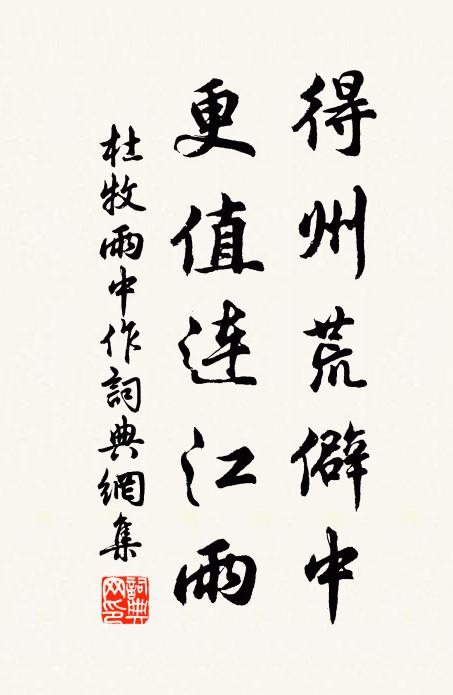 得州荒僻中
更值連江雨
杜牧雨中作詞典網集
詞典網印